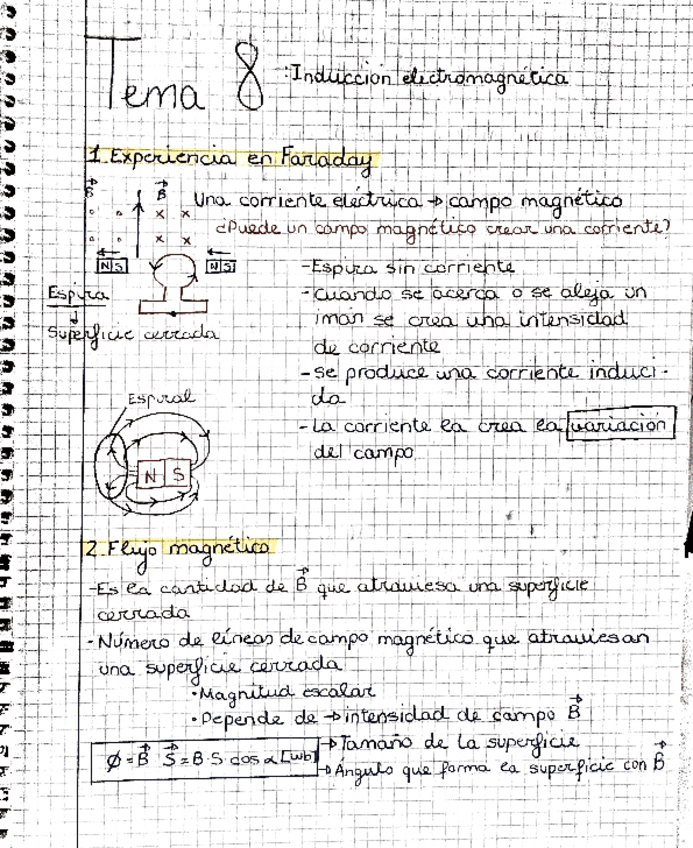 Tema 8: Inducción electromagnética
1. Experiencia en Faraday
B B Una corriente eléctrica → campo magnético
¿Puede un campo magnético crear una corriente?
N S N S
- Espira sin corriente
Espira
- Cuando se acerca o se aleja un
Superficie cerrada
imán se crea una intensidad
de corriente
- se produce una corriente induci-
da
Espiral
- La corriente la crea la variación
del campo
N S
2. Flujo magnético
- Es la cantidad de B⃗ que atraviesa una superficie
cerrada
- Número de líneas de campo magnético que atraviesan
una superficie cerrada
• Magnitud escalar
• Depende de → intensidad de campo B⃗
→ Tamaño de la superficie
Ø = B⃗ S⃗ = B·S·cos α [wb]
→ Ángulo que forma la superficie con B⃗